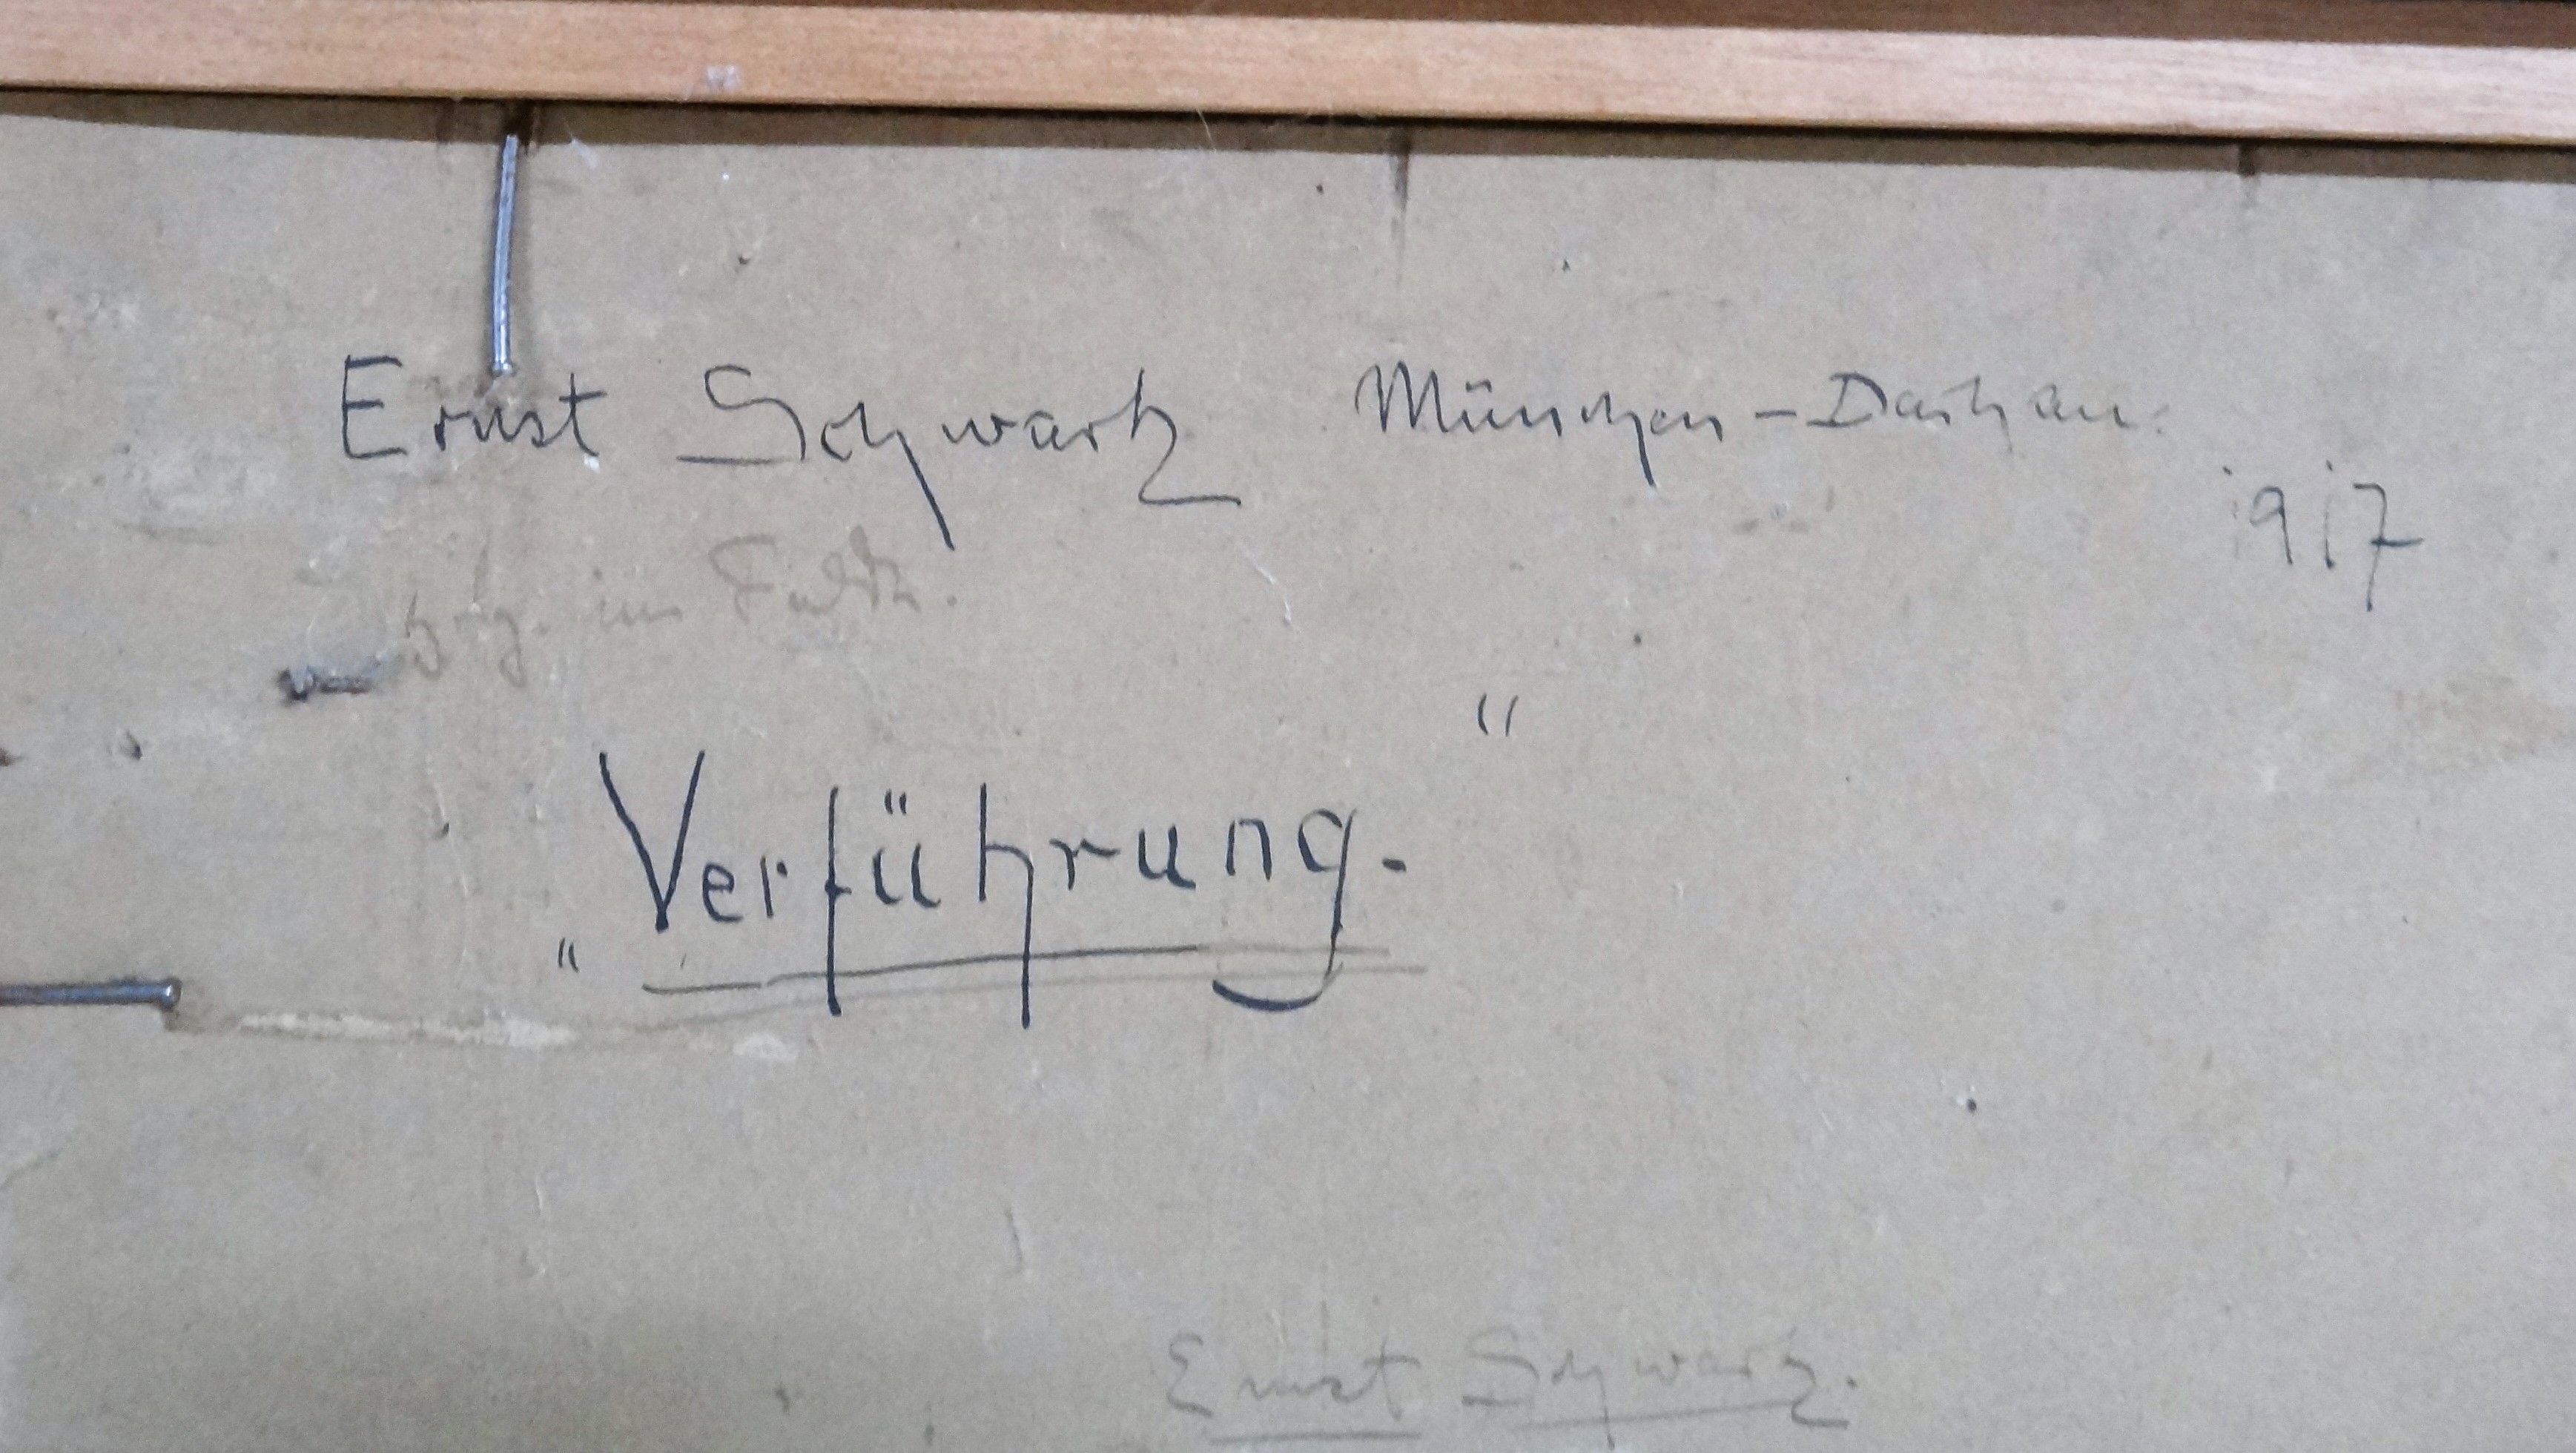 Ernst Schwartz München-Dachau.
1917
im
„Verführung.“
Ernst Schwartz.